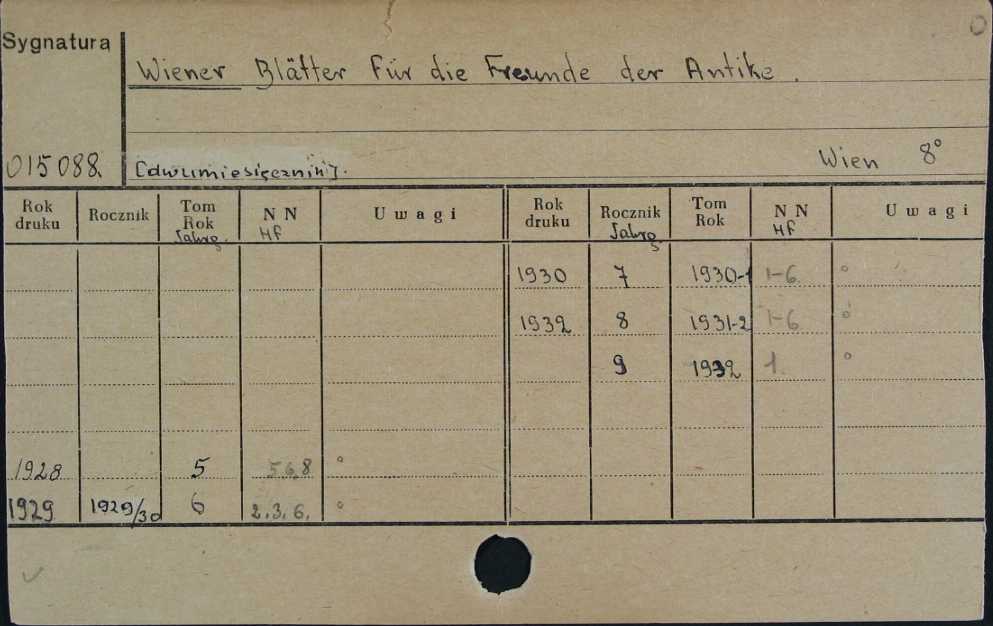 Sygnatura
Wiener Blätter für die Freunde der Antike.
Wien 8°
015088. [dwumiesięcznik].
Rok druku Rocznik Tom Rok Jahrg. NN Hf Uwagi Rok druku Rocznik Jahrg Tom Rok NN Hf Uwagi
1930 7 1930-1 1-6 °
1932 8 1931-2 1-6 °
9 1932 1. °
1928 5 5 6,8 °
1929 1929/30 6 2.3.6. °